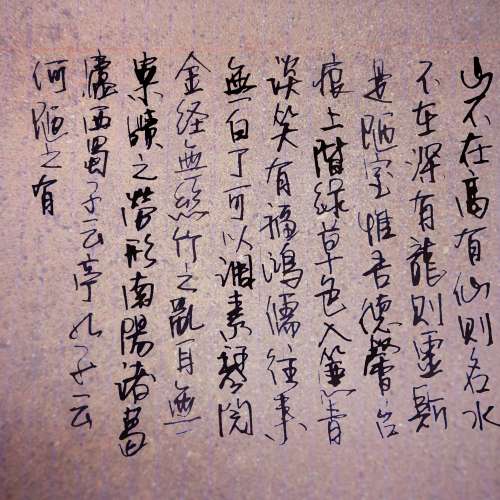 山不在高有仙則名水
不在深有龍則靈斯
是陋室惟吾德馨台
痕上階緑草色入簾青
談笑有福鴻儒往来
無白丁可以調素琴閲
金経無絲竹之亂耳無
案牘之勞形南陽諸葛
廬西蜀子云亭孔子云
何陋之有